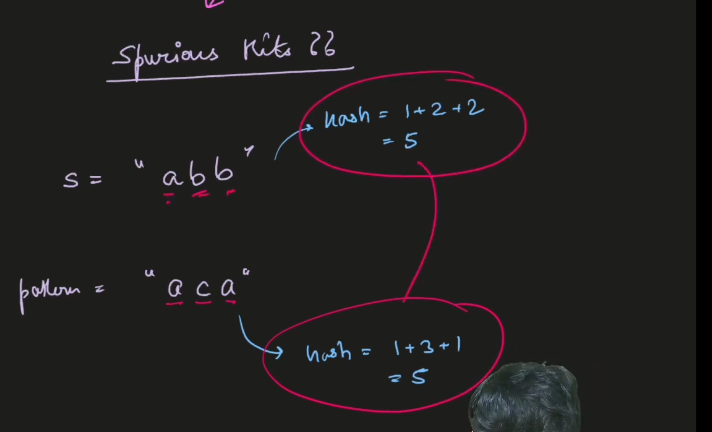 Spurious Hits ??
hash = 1+2+2
= 5
s = "abb"
pattern = "aca"
hash = 1+3+1
= 5